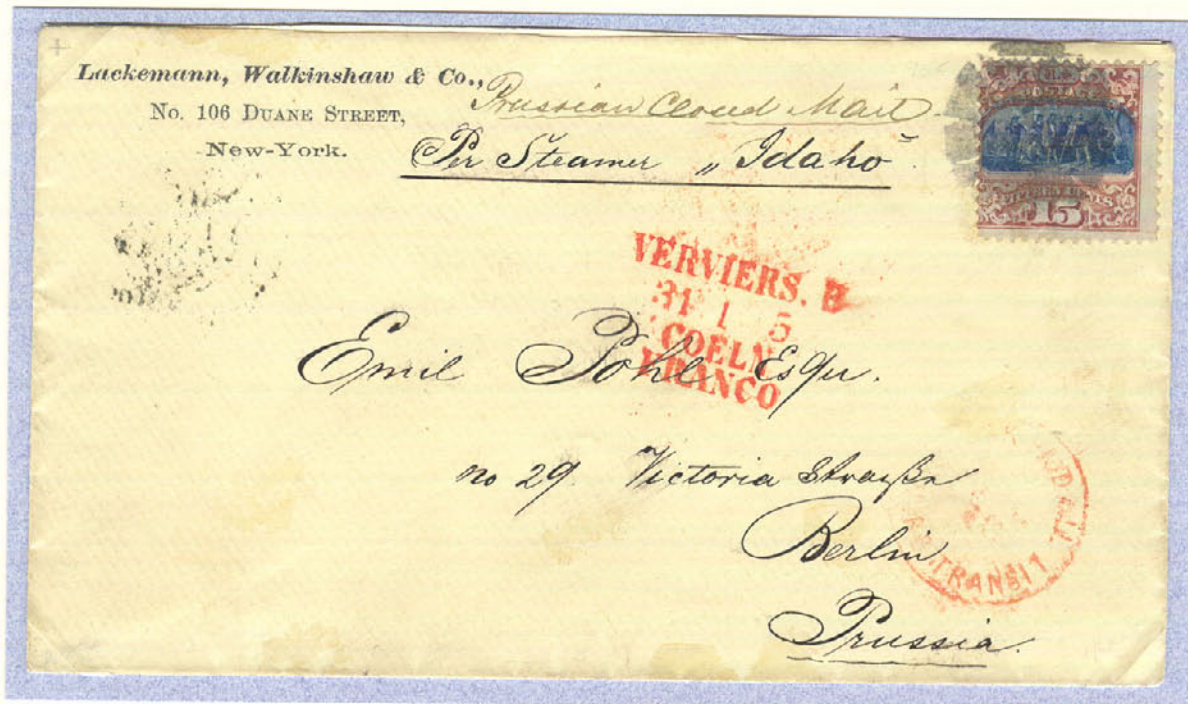 Lackemann, Walkinshaw & Co.,
No. 106 DUANE STREET,
New-York.
Prussian Closed Mail
Per Steamer „Idaho"
POSTAGE
FIFTEEN CENTS
15
VERVIERS.
31 1 5
COELN
FRANCO
Emil Pohl Esqu.
no 29 Victoria Straße
Berlin
Prussia.
TRANSIT